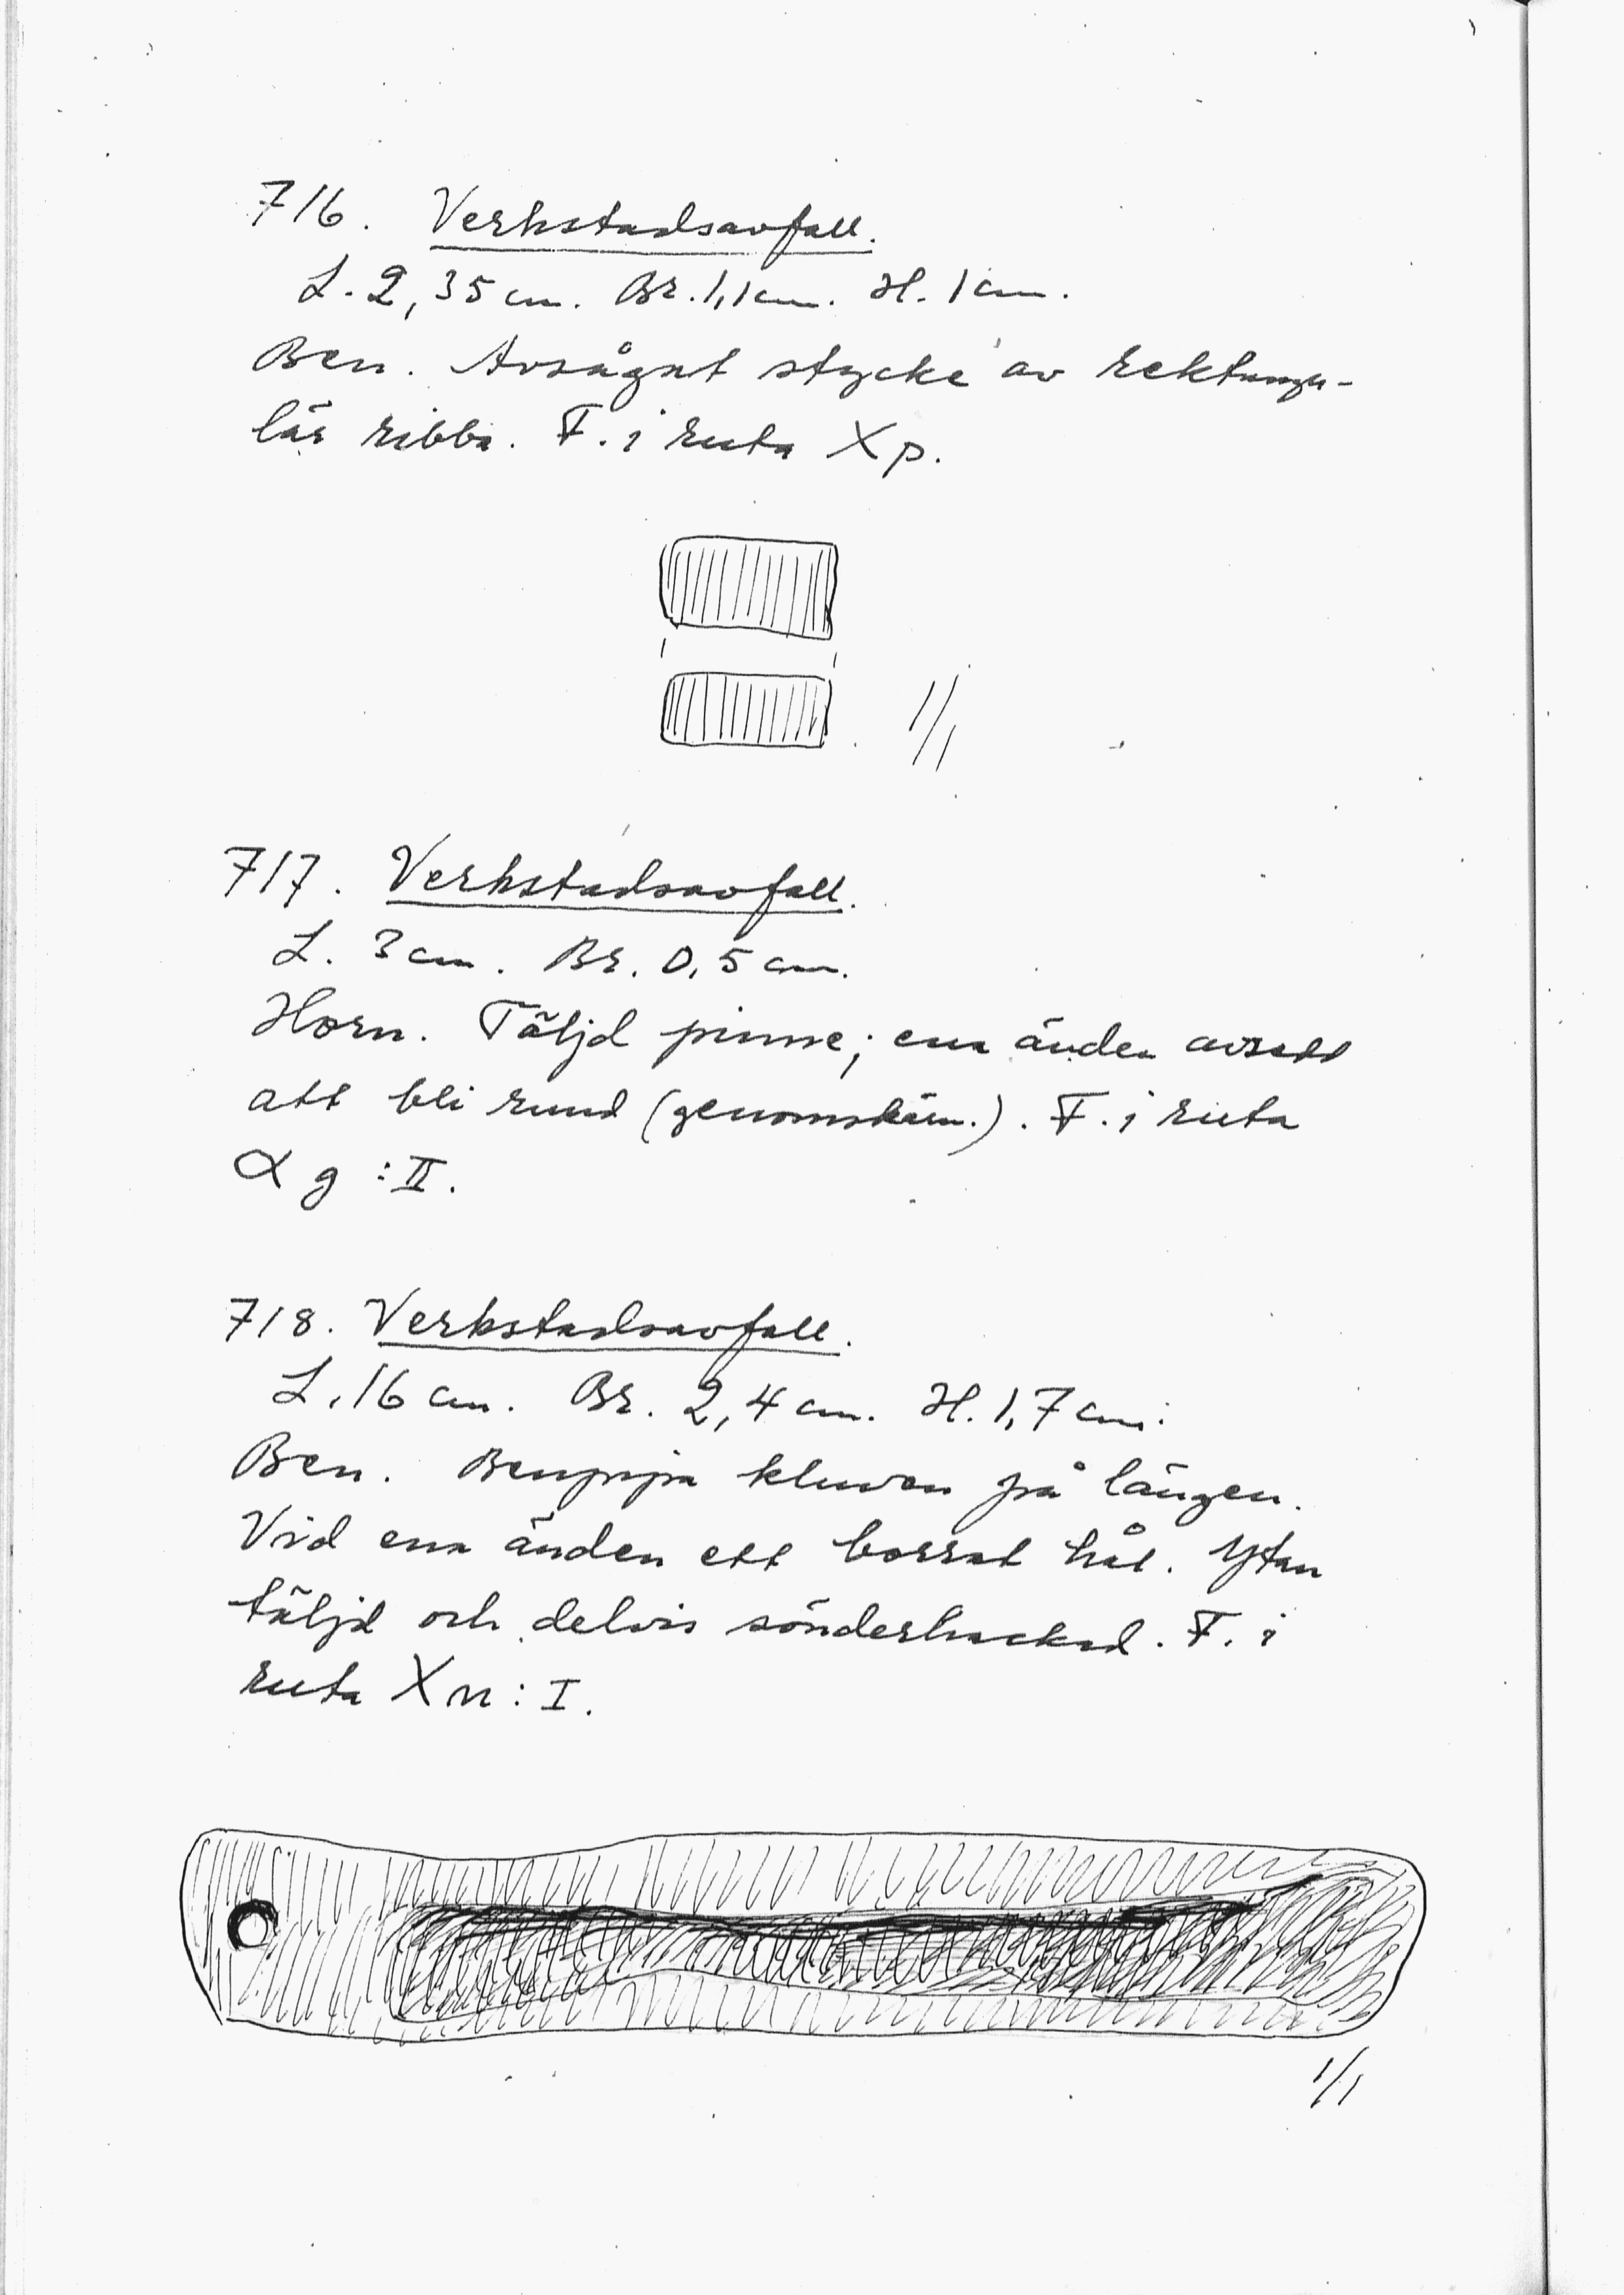 716. Verkstadsavfall.
L. 2,35 cm. Br. 1,1 cm. H. 1 cm.
Ben. Avsågat stycke av rektangu-
lär ribba. F. i ruta Xp.
1/1
717. Verkstadsavfall.
L. 3 cm. Br. 0,5 cm.
Horn. Täljd pinne; ena änden avsedd
att bli rund (genomskärn.). F. i ruta
α g : II.
718. Verkstadsavfall.
L. 16 cm. Br. 2,4 cm. H. 1,7 cm.
Ben. Benpipa kluven på längen.
Vid ena änden ett borrat hål. Ytan
täljd och delvis sönderhackad. F. i
ruta Xn : I.
1/1